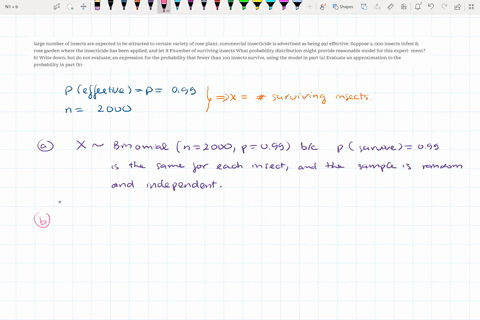 N1 + b
Shapes
large number of insects are expected to be attracted to certain variety of rose plant. commercial insecticide is advertised as being 992 effective. Suppose 2, ooo insects infest &
rose garden where the insecticide has been applied, and let X Fnumber of surviving insects What probability distribution might provide reasonable model for this experi- ment?
b) Write down; but do not evaluate; an expression for the probability that fewer than 100 insects survive, using the model in part (a) Evaluate an approximation to the
probability in part (b)
P (effective) = p = 0.99
n = 2000
⇒ X = # surviving insects.
(a) X ~ Binomial (n=2000, p=0.99) b/c P (survive) = 0.99
is the same for each insect, and the sample is random
and independent.
(b)